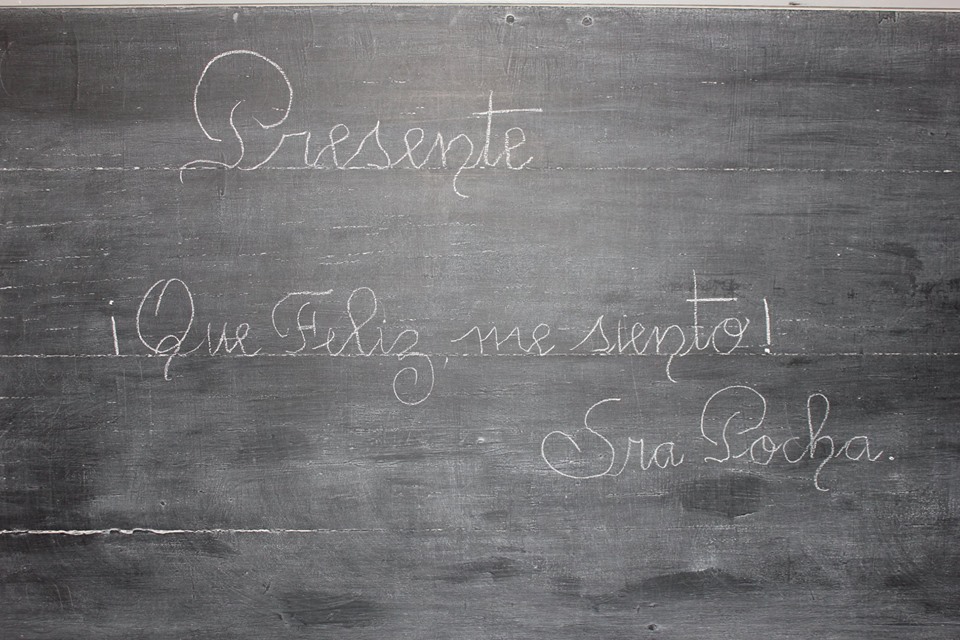 Presente
¡Que Feliz, me siento!
Sra Pocha.